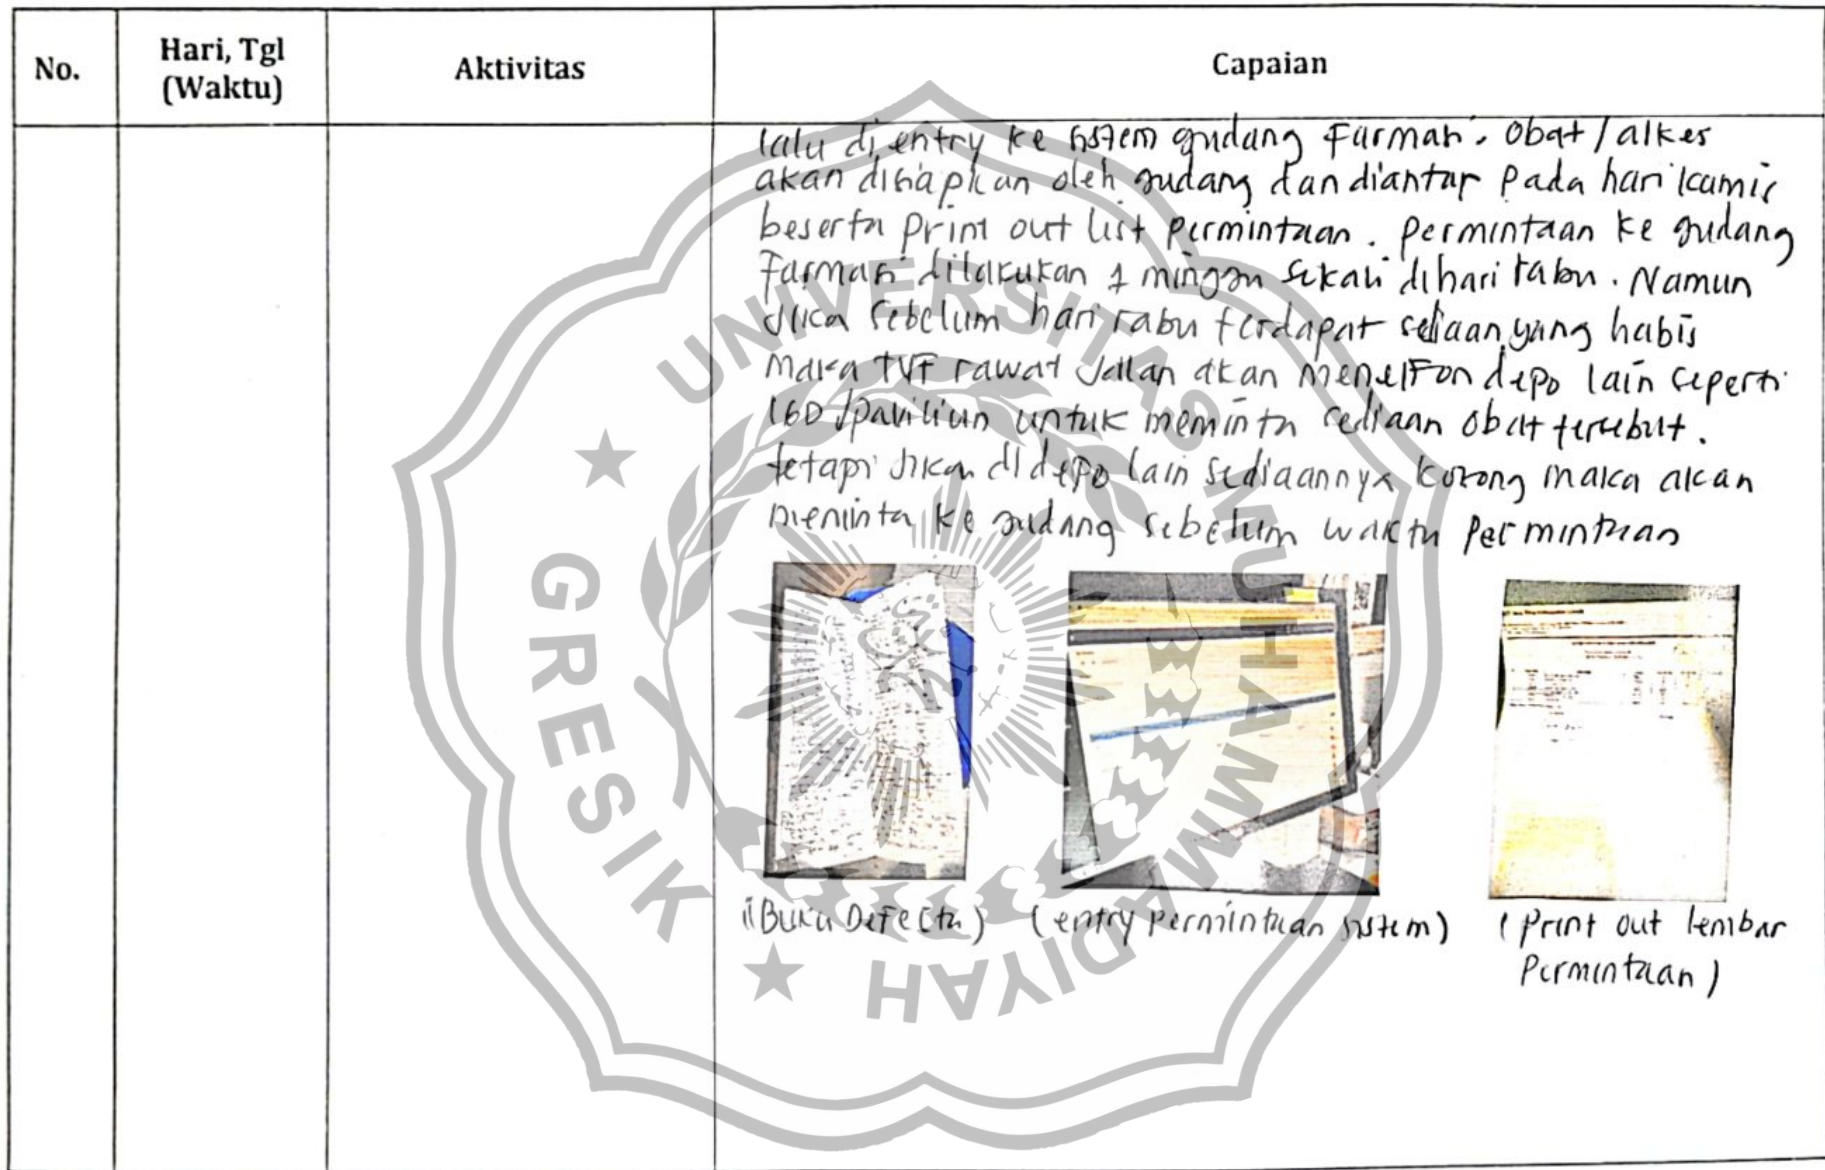 No.
Hari, Tgl
(Waktu)
Aktivitas
Capaian
lalu di entry ke sistem gudang Farmasi. Obat/alkes
akan disiapkan oleh gudang dan diantar pada hari kamis
beserta print out list permintaan. permintaan ke gudang
Farmasi dilakukan 1 minggu sekali dihari rabu. Namun
Jika sebelum hari rabu terdapat sediaan yang habis
maka rawat Jalan akan menelfon depo lain seperti
IGD/paviliun untuk meminta sediaan obat tersebut.
tetapi jika di depo lain sediaannya kosong maka akan
meminta ke gudang sebelum waktu permintaan
(Buku Defecta)
(entry permintaan sistem)
(print out lembar
permintaan)
UNIVERSITAS MUHAMMADIYAH
GRESIK